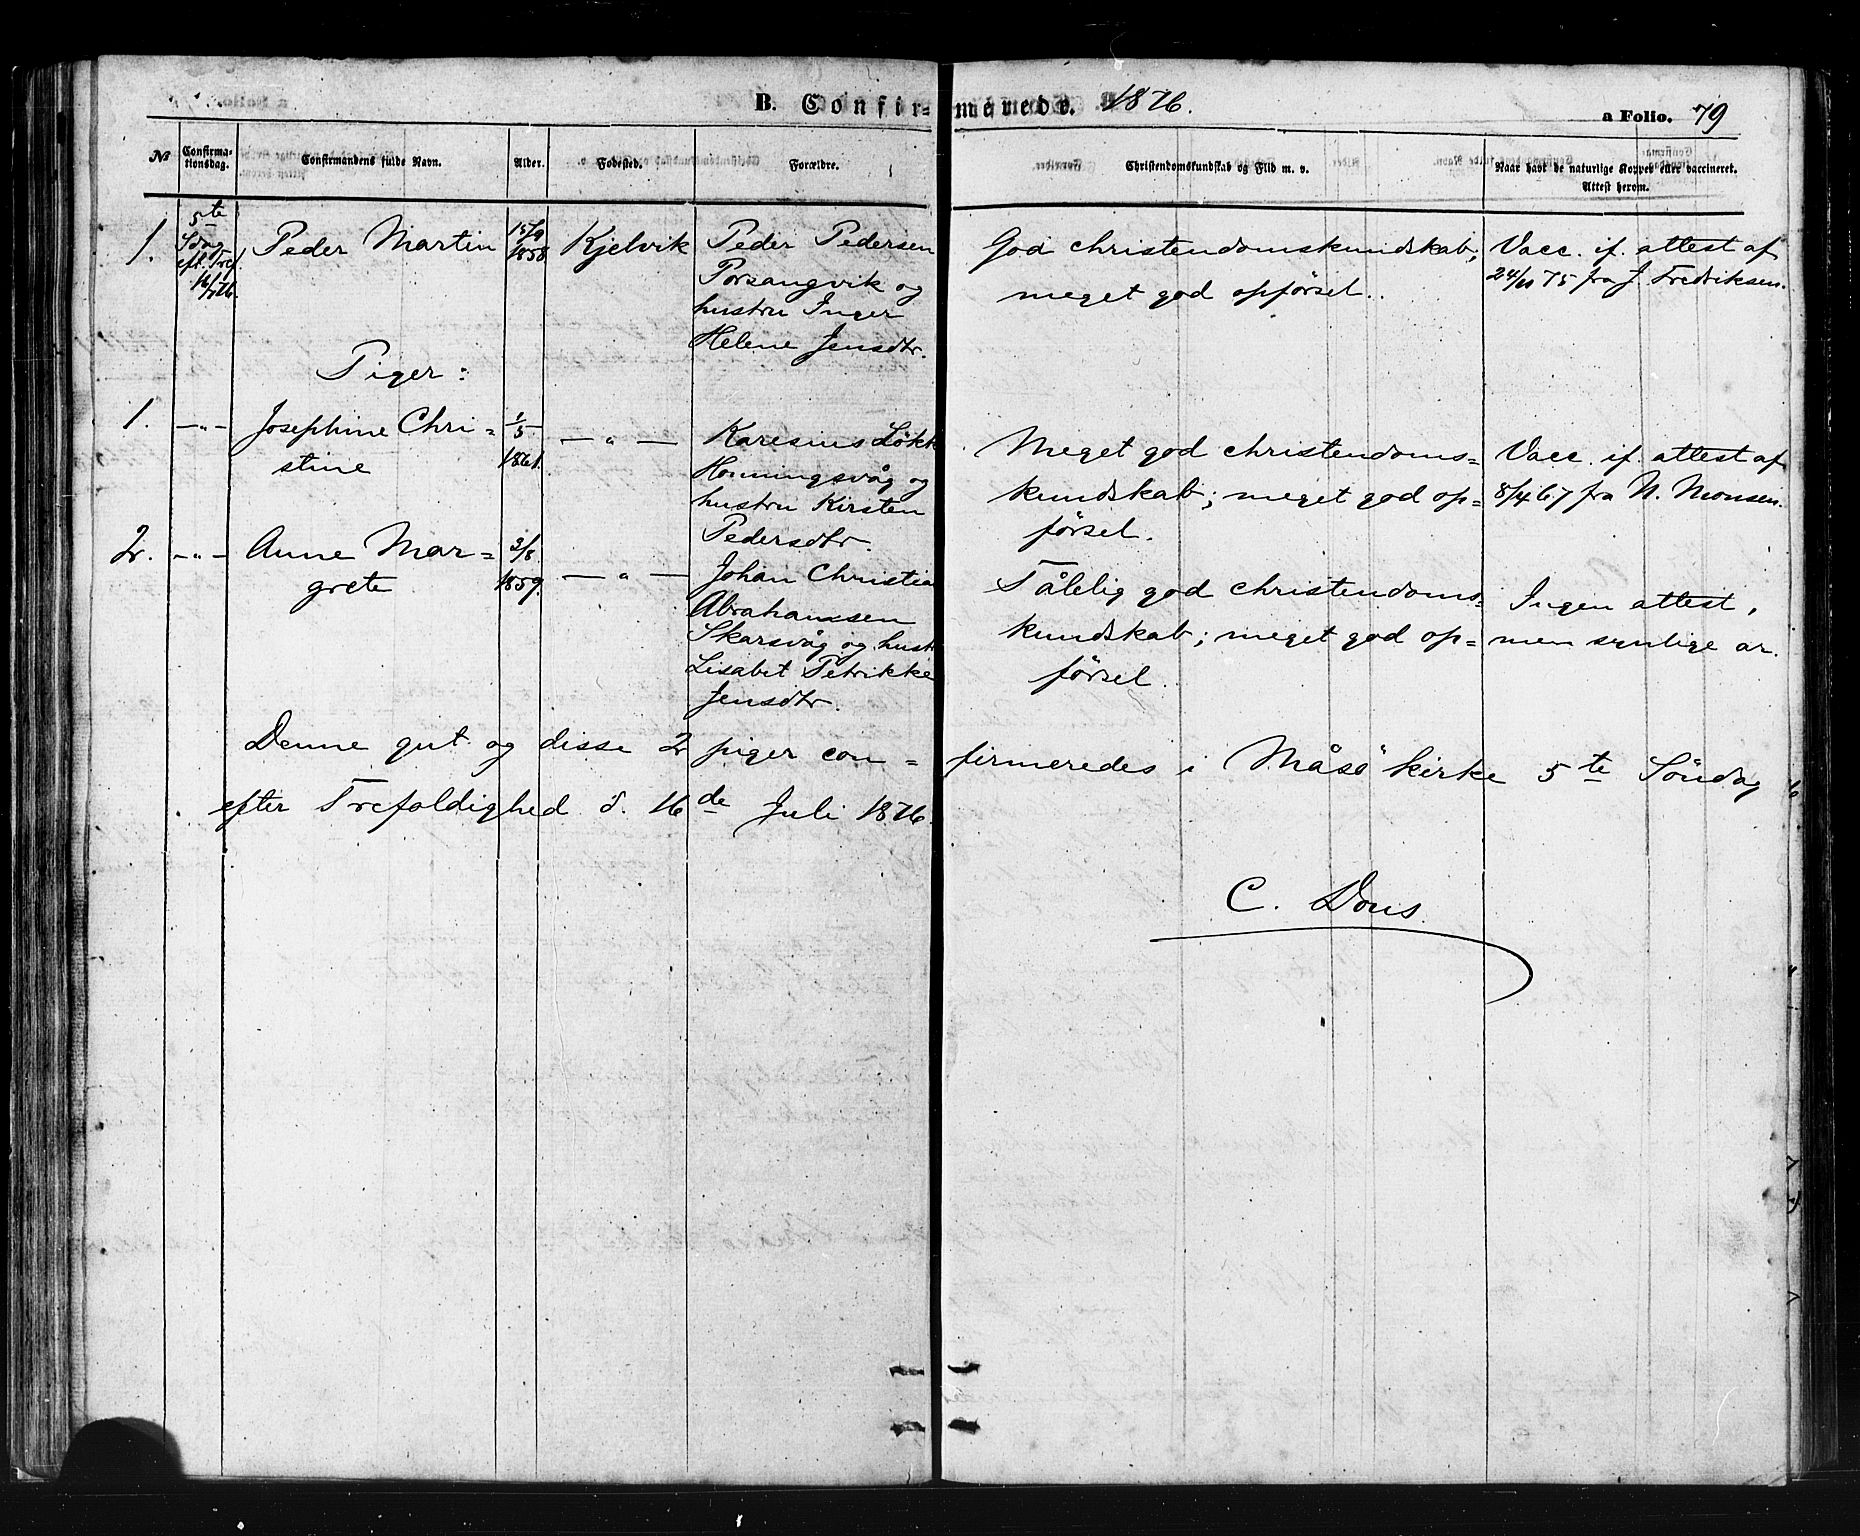 B. Confir- merede. 1876. a Folio. 79
No Confirma-tionsdag. Confirmandens fulde Navn. Alder. Fødested. Forældre. Christendomskundskab og Flid m. v. Naar havt de naturlige Kopper eller vaccineret. Attest herom.
1. 5te Sdag eft. Tref. 16/7 76. Peder Martin 15/9 1858 Kjelvik Peder Pedersen God christendomskundskab; Vacc. if. attest af
Porsangvik og meget god opførsel. 24/11 75 fra J. Fredriksen.
hustru Inger
Helene Jensdtr.
Piger:
1. —"— Josephine Chri= 1/5 1861. —"— Karesius Løkk Meget god christendoms= Vacc. if. attest af
stine Honningsvåg og kundskab; meget god op= 8/4 67 fra N. Monsen.
hustru Kirsten førsel.
Pedersdtr.
2. —"— Anne Mar= 3/8 1859. —"— Johan Christian Tålelig god christendoms= Ingen attest,
grete Abrahamsen kundskab; meget god op= men synlige ar.
Skarsvåg og hust førsel.
Lisabet Petrikke
Jensdtr.
Denne gut og disse 2 piger con= firmeredes i Måsø kirke 5te Söndag
efter Trefoldighed d. 16de Juli 1876.
C. Dons.